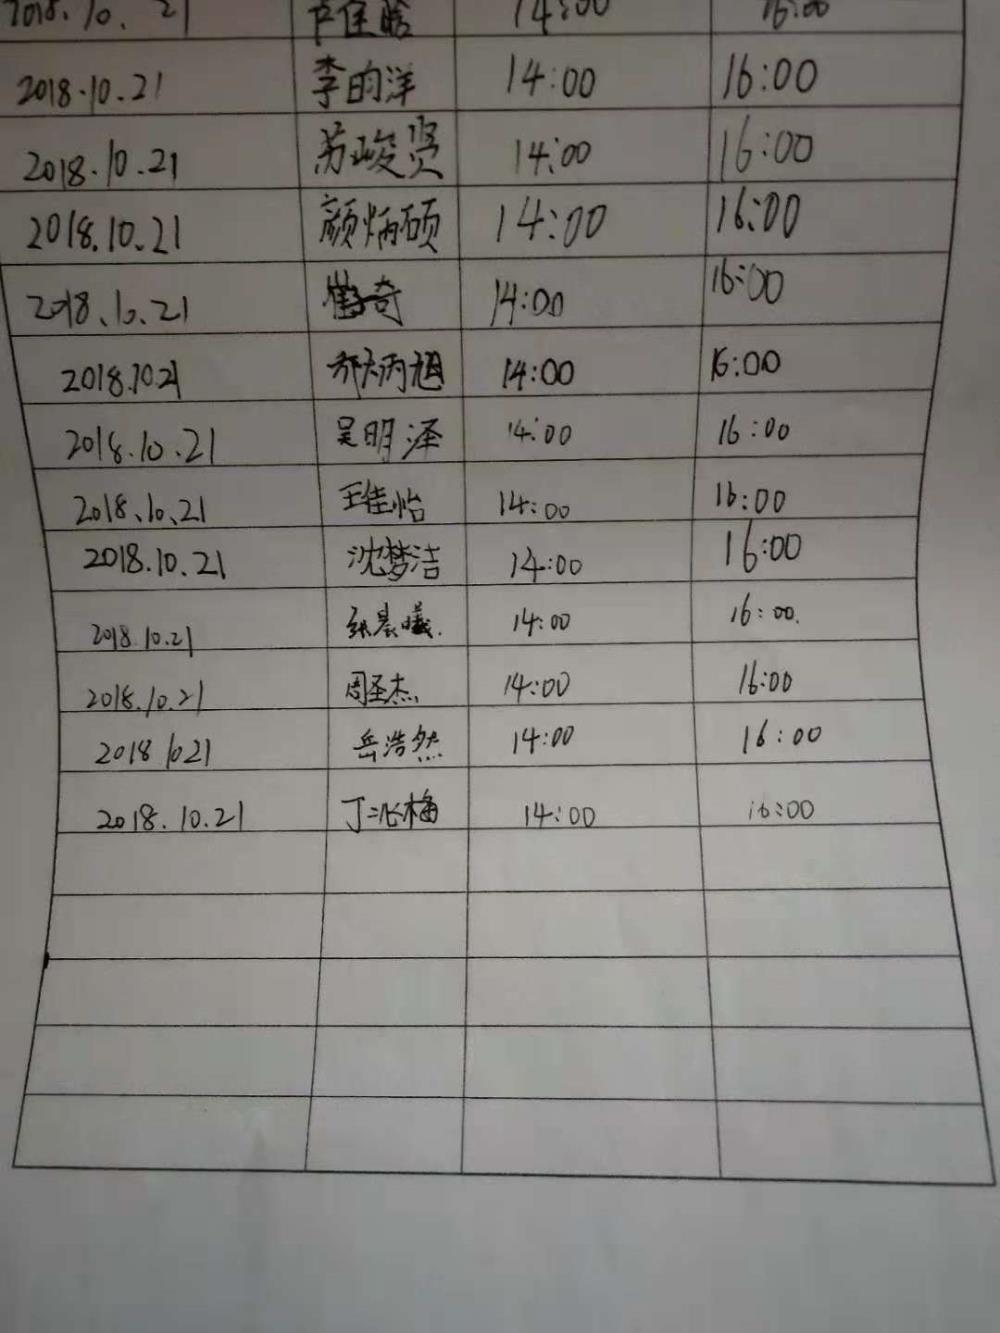 2018.10.21 14:00 16:00
2018.10.21 李昀洋 14:00 16:00
2018.10.21 苏峻贤 14:00 16:00
2018.10.21 颜炳硕 14:00 16:00
2018.10.21 崔奇 14:00 16:00
2018.10.21 炳旭 14:00 16:00
2018.10.21 吴明泽 14:00 16:00
2018.10.21 王佳怡 14:00 16:00
2018.10.21 沈梦洁 14:00 16:00
2018.10.21 张晨曦. 14:00 16:00.
2018.10.21 周圣杰 14:00 16:00
2018 1021 岳浩然 14:00 16:00
2018.10.21 14:00 16:00